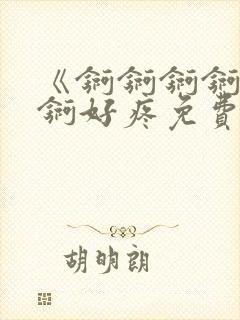 《锕锕锕锕
锕好疼免費
胡明朗